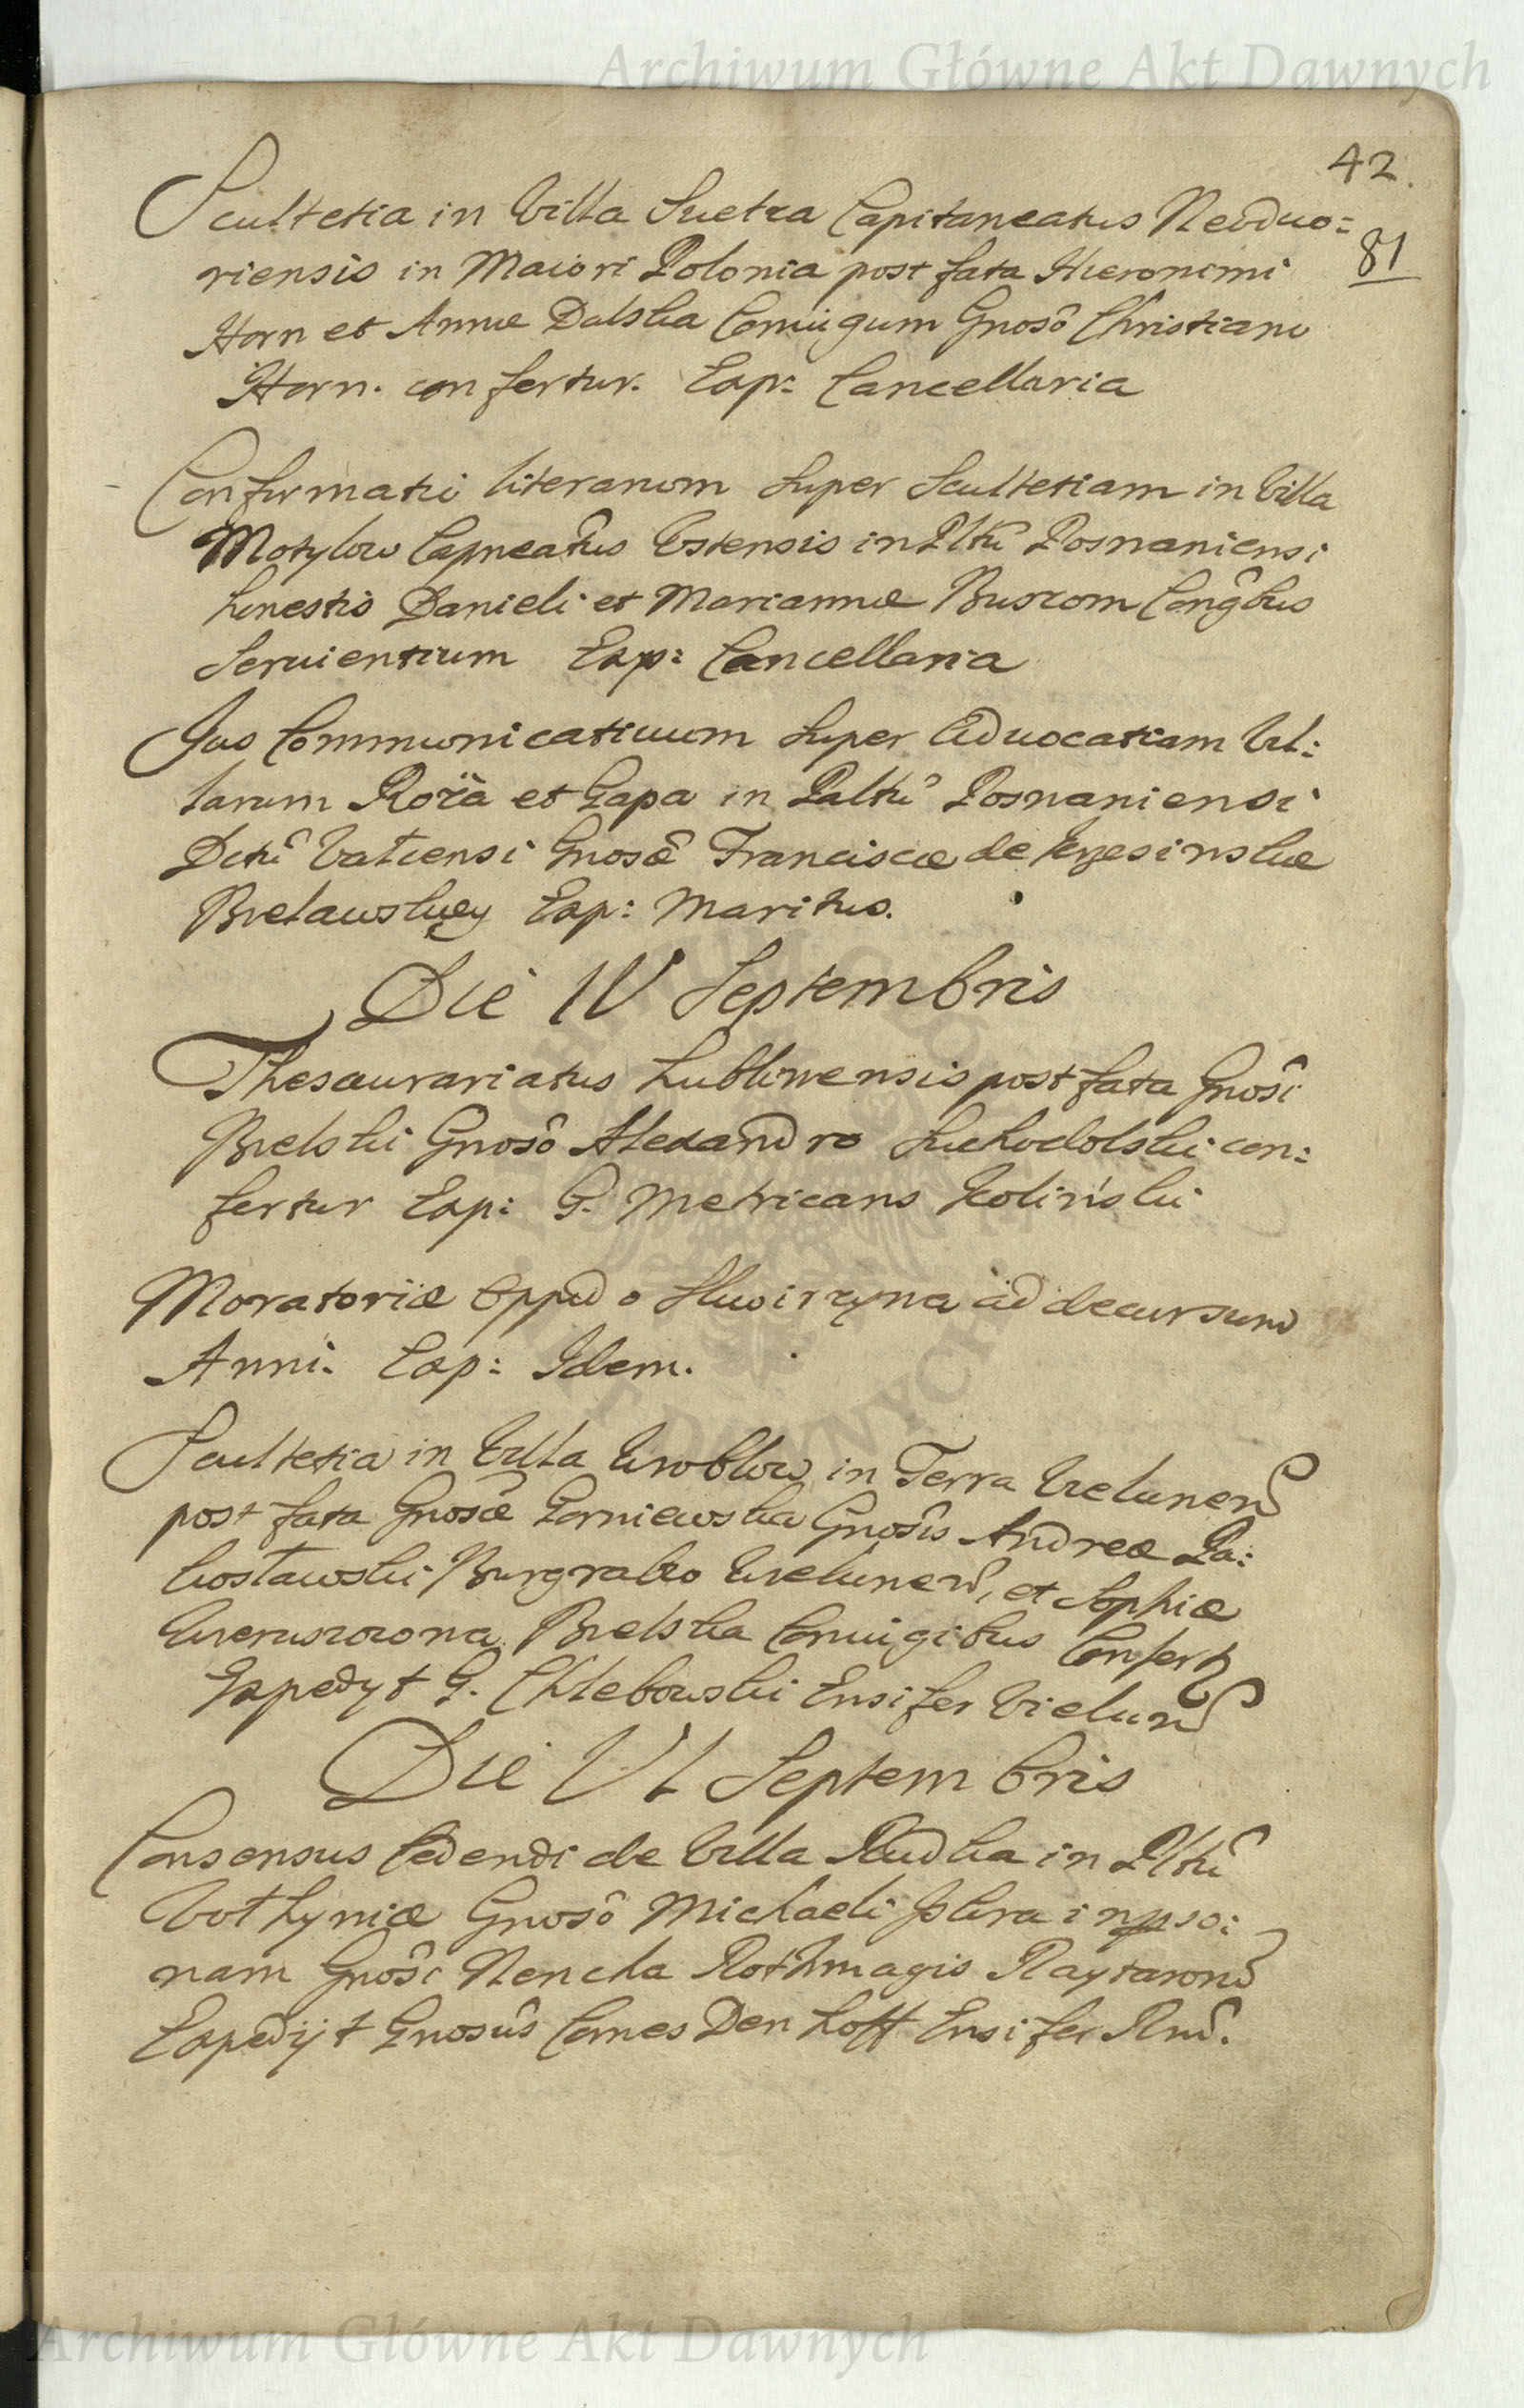 Archiwum Główne Akt Dawnych
42.
81
Scultetia in Villa Suetra Capitaneatus Neoduo:
riensis in Maiori Polonia post fata Hieronimi
Horn et Annæ Dalska Coniugum Gnosô Christiano
Horn. confertur. Exp: Cancellaria
Confirmatio literarum super Scultetiam in Villa
Motylow Capneatûs Ustensis in Pltû Posnaniensi
honestis Danieli et Mariannæ Buszom Congbûs
Seruientium Exp: Cancellaria
Jus Communicatiuum super Aduocatiam Vil:
larum Roża et Gapa in Paltû Posnaniensi
Dctû Valcensi Gnosæ Franciscæ de
Exp: Maritus.
Die IV Septembris
Thesaurariatus Lublinensis post fata Gnosî
Bielski Gnosô Alexandro Suchodolski con:
fertur Exp: G. Metricans Koliński
Moratoriæ Oppido Skwirzyna ad decursum
Anni. Exp: Idem.
Scultetia in Villa Wroblow in Terra Vielunen
post fata Gnosæ Parniewska Gnosîs Andreæ Pa:
kosławski Burgrabio Vieluneñ, et Sophiæ
Bielska Coniugibus Confert
Expedyt G. Chlebowski Ensifer Vielun
Die VI Septembris
Consensus Cedendi de Villa Rudka in Pltû
Volhyniæ Gnosô Michaeli in pso:
nam Gnosî Nencha Rothmagis Raytaron
Expedijt Gnosûs Comes Denhoff Ensifer Rni.
Archiwum Główne Akt Dawnych